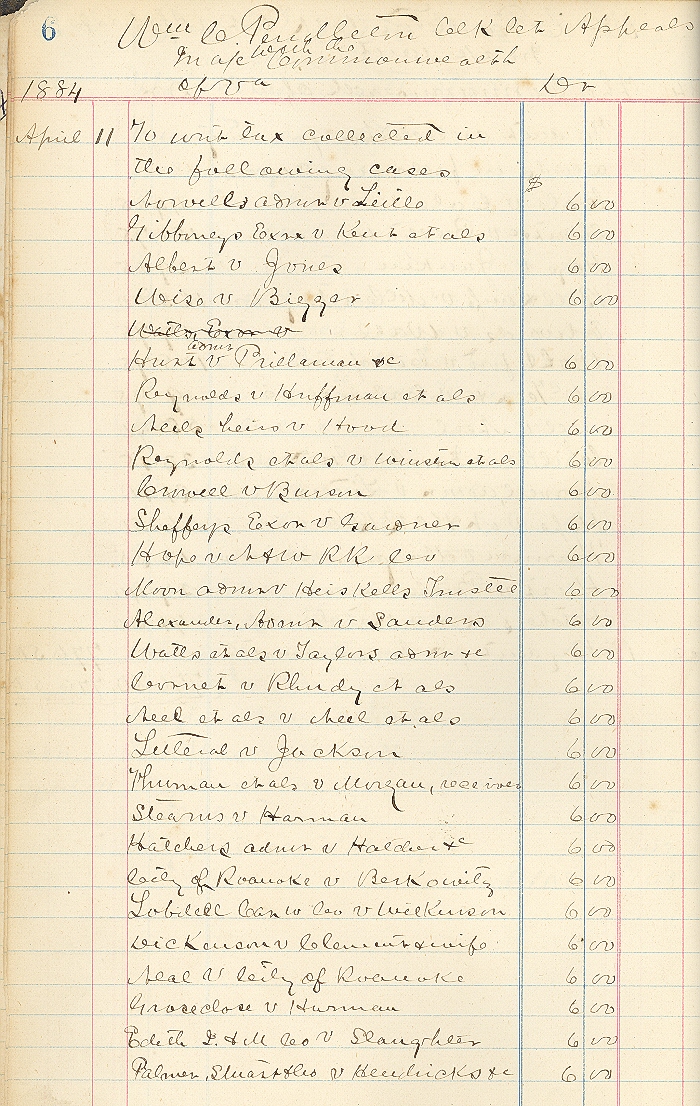 6
Wm C Pendleton Clk Ct Appeals
In a/c with the Commonwealth
of Va Dr
1884
April 11 To writ tax collected in
the following cases
Norvells admr v Little $ 6 00
Gibboneys Exrx v Kent et als 6 00
Albert v Jones 6 00
Wise v Bigger 6 00
Watts, Exor v
Hunt admr v Prillaman &c 6 00
Reynolds v Huffman et als 6 00
Neels heirs v Hood 6 00
Reynolds et als v Winston et als 6 00
Crowell v Burson 6 00
Sheffeys Exor v Gardner 6 00
Hope v N & W RR Co 6 00
Moon admr v Heiskells Trustee 6 00
Alexander, Admr v Sanders 6 00
Watts et als v Taylors admr &c 6 00
Cornet v Rhudy et als 6 00
Neel et als v Neel et als 6 00
Litteral v Jackson 6 00
Thurman et als v Morgan, receiver 6 00
Stearns v Harman 6 00
Hatchers admr v Hatcher &c 6 00
City of Roanoke v Berkowitz 6 00
Lobdell Car W Co v Wilkinson 6 00
Dickenson v Clement & wife 6 00
Neal v City of Roanoke 6 00
Groseclose v Harman 6 00
Edith I. & M Co v Slaughter 6 00
Palmer, Stuart & Co v Hendricks &c 6 00